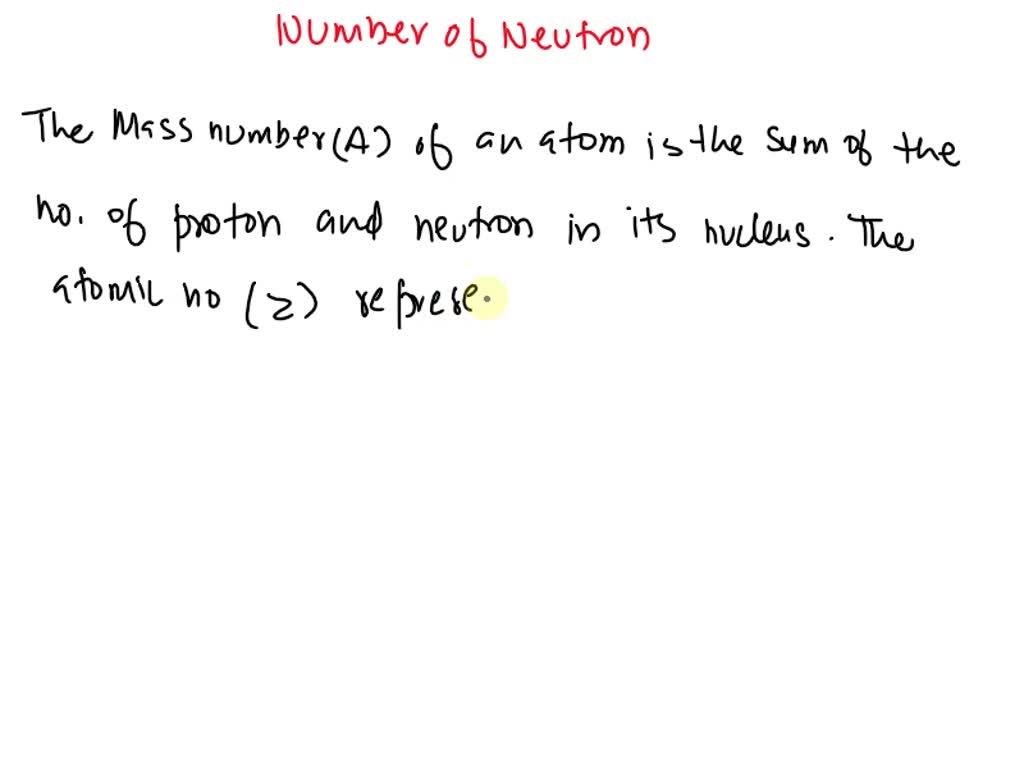 Number of Neutron
The Mass number (A) of an atom is the sum of the
no. of proton and neutron in its nucleus. The
atomic no (Z) represe